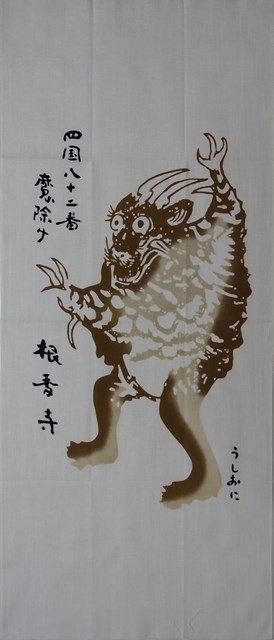 四国八十二番
魔除け
根香寺
うしおに